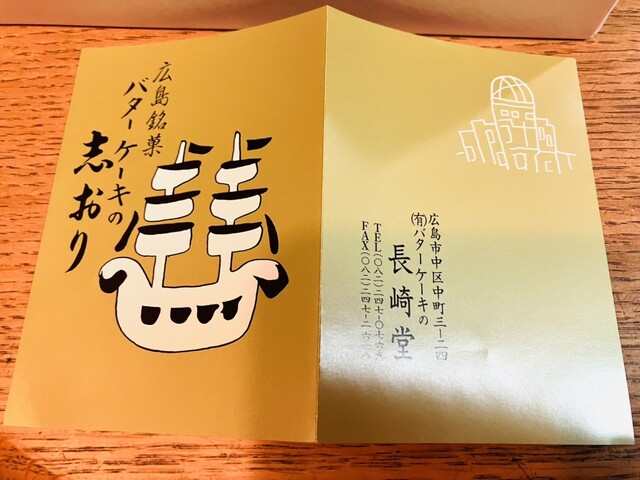 広島銘菓
バターケーキの
志おり
広島市中区中町三ー二四
(有)バターケーキの
長崎堂
TEL(〇八二)二四七ー〇七六九
FAX(〇八二)二四七ー二六一八